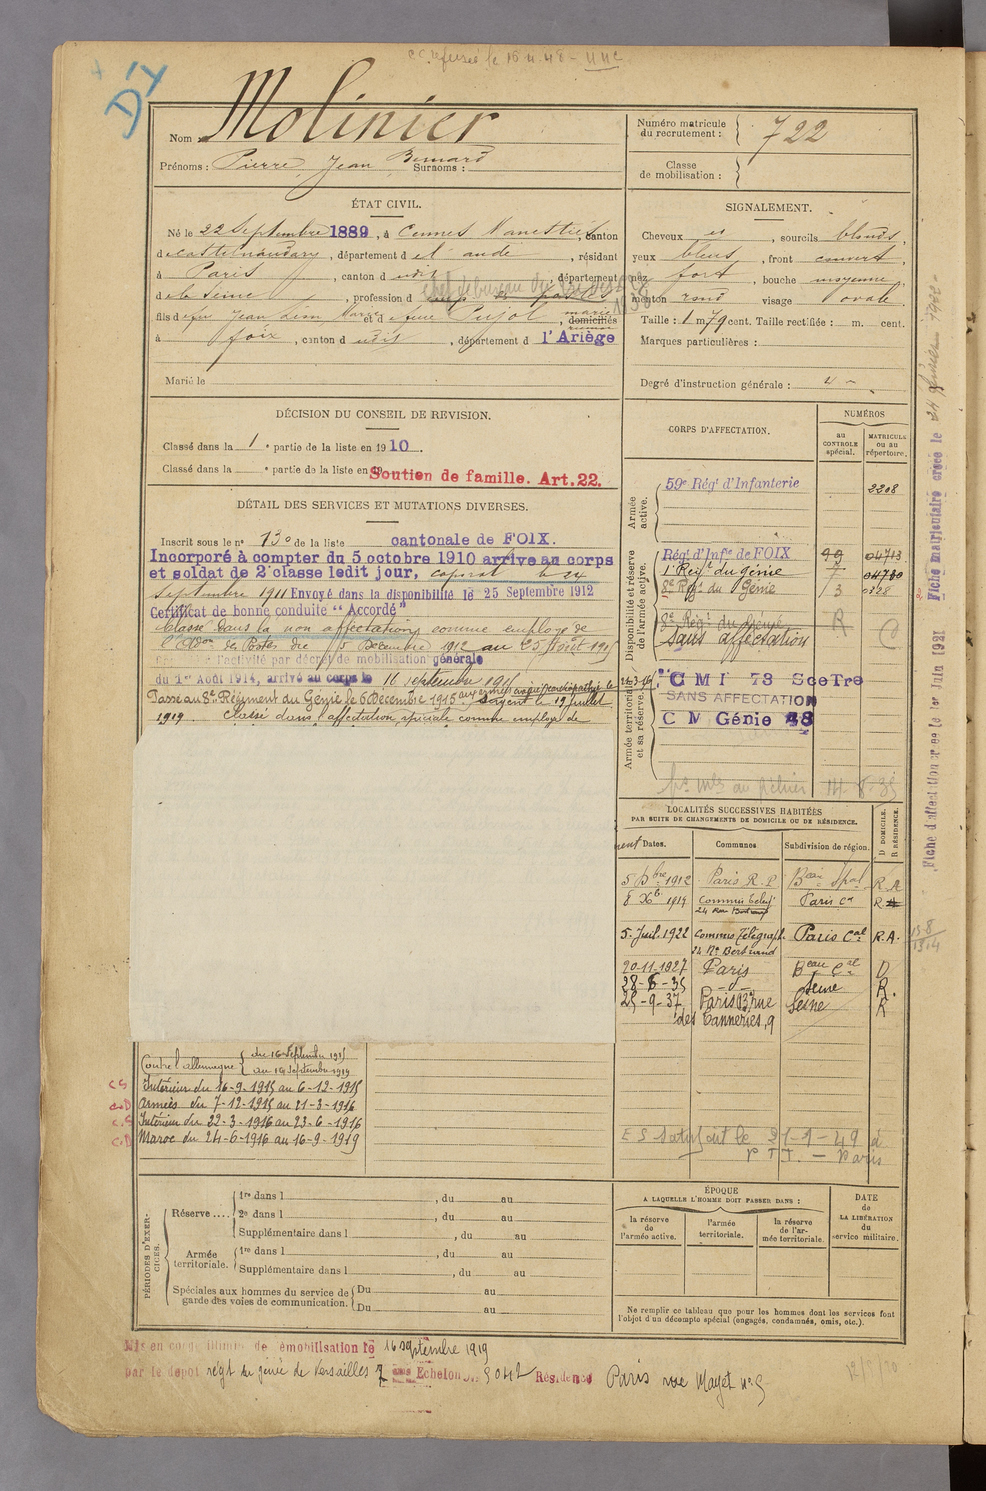 D'X
c.c. refusée le
Nom : Molinier
Prénoms : Pierre, Jean, Bernard Surnoms :
Numéro matricule du recrutement : 722
Classe de mobilisation :
ÉTAT CIVIL.
Né le 22 Septembre 1889, à Cennes Monestiés, canton
de Castelnaudary, département de l'aude, résidant
à Paris, canton d udit, département
de la Seine, profession d
chef de bureau
1938
fils de feu Jean Léon Marie et de feue Pujol marie domiciliés
à foix, canton d udit, département d l'Ariège
Marié le
SIGNALEMENT.
Cheveux et , sourcils blonds,
yeux bleus , front couvert,
nez fort , bouche moyenne,
menton rond visage ovale.
Taille : 1 m 79 cent. Taille rectifiée : m. cent.
Marques particulières :
Degré d'instruction générale :
DÉCISION DU CONSEIL DE REVISION.
Classé dans la 1e partie de la liste en 1910.
Classé dans la e partie de la liste en 19
Soutien de famille. Art. 22.
DÉTAIL DES SERVICES ET MUTATIONS DIVERSES.
Inscrit sous le n° 130 de la liste cantonale de FOIX.
Incorporé à compter du 5 octobre 1910 arrivé au corps
et soldat de 2e classe ledit jour, caporal le 24
Septembre 1911 Envoyé dans la disponibilité le 25 Septembre 1912
Certificat de bonne conduite "Accordé"
Classé dans la non affectation comme employé de
l'Adon des Postes du 5 Décembre 1912 au 25 Août 1915
l'activité par décret de mobilisation générale
du 1er Août 1914, arrivé au corps le 16 septembre 1915
Passé au 8e Régiment du Génie le 6 Décembre 1915 Sergent le 19 Juillet
1919. Classé dans l'affectation spéciale comme employé de
CORPS D'AFFECTATION.
NUMÉROS
au CONTRÔLE spécial.
MATRICULE ou au répertoire.
Armée active.
59e Régt d'Infanterie 2208
Disponibilité et réserve de l'armée active.
Régt d'Infie de FOIX 99 04713
1er Régt du génie 7 04780
8e Régt du Génie 3 0328
8e Régt du Génie R
Sans affectation
Armée territoriale et sa réserve.
CMI 73 Son Tre
SANS AFFECTATION
C M Génie 48
LOCALITÉS SUCCESSIVES HABITÉES
PAR SUITE DE CHANGEMENTS DE DOMICILE OU DE RÉSIDENCE.
Dates. Communes. Subdivision de région. D DOMICILE. R RÉSIDENCE.
5 Dbre 1912 Paris R.P. R.A
8 Xb. 1919 Commis Paris Cal R
5. Juil. 1922 Commis Télégraph. Paris Cal R.A.
24 Ne Bertrand
20-11-1927 Paris Beau Cal D
28-6-35 -d- Seine R.
25-9-37 Paris 13e rue Seine R
des Tanneries, 9
Contre l'allemagne { du 16 Septembre 1915
au 16 Septembre 1919
CS Intérieur du 16-9-1915 au 6-12-1915
C.D Armées du 7-12-1915 au 21-3-1916
C.S Intérieur du 22-3-1916 au 23-6-1916
C.D Maroc du 24-6-1916 au 16-9-1919
E S satisfait le 21-1-49 à
P T T. - Paris
PÉRIODES D'EXERCICES.
Réserve .... 1re dans l , du au
2e dans l , du au
Supplémentaire dans l , du au
Armée territoriale. 1re dans l , du au
Supplémentaire dans l , du au
Spéciales aux hommes du service de garde des voies de communication. Du au
Du au
ÉPOQUE
A LAQUELLE L'HOMME DOIT PASSER DANS :
la réserve de l'armée active.
l'armée territoriale.
la réserve de l'armée territoriale.
DATE de LA LIBÉRATION du service militaire.
Ne remplir ce tableau que pour les hommes dont les services font l'objet d'un décompte spécial (engagés, condamnés, omis, etc.).
Mis en congé illimité de démobilisation le 16 septembre 1919
par le dépôt régt du génie de Versailles 7 eme Echelon Résidence Paris rue Mayet n° 5
Fiche matriculaire créée le
Fiche d'affectation créée le 1er Juin 1921